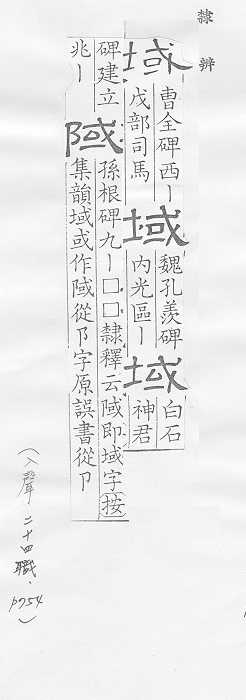 隸辨
域
曹全碑西｜
戊部司馬
域
魏孔羨碑
內光區｜
域
白石
神君
碑建立
兆｜
孫根碑九｜□□隸釋云 即域字按
集韻域或作 從阝字原誤書從卩
（入聲 二十四職．P754）